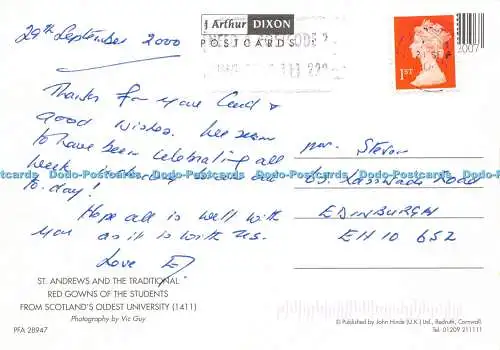 29th September 2000
Arthur DIXON
POSTCARDS
2007
1ST
Thanks for your Card &
good wishes. We seem
to have been celebrating all
week
to-day!
Hope all is well with
you as it is with us.
Love
Mr.
Road
EDINBURGH
EH10
Dodo-Postcards Dodo-Postcards Dodo-Postcards Dodo-Postcards Dodo-Postcards Dodo-Postcards
ST. ANDREWS AND THE TRADITIONAL
RED GOWNS OF THE STUDENTS
FROM SCOTLAND'S OLDEST UNIVERSITY (1411)
Photography by Vic Guy
PFA 28947
© Published by John Hinde (U.K.) Ltd., Redruth, Cornwall.
Tel. 01209 211111